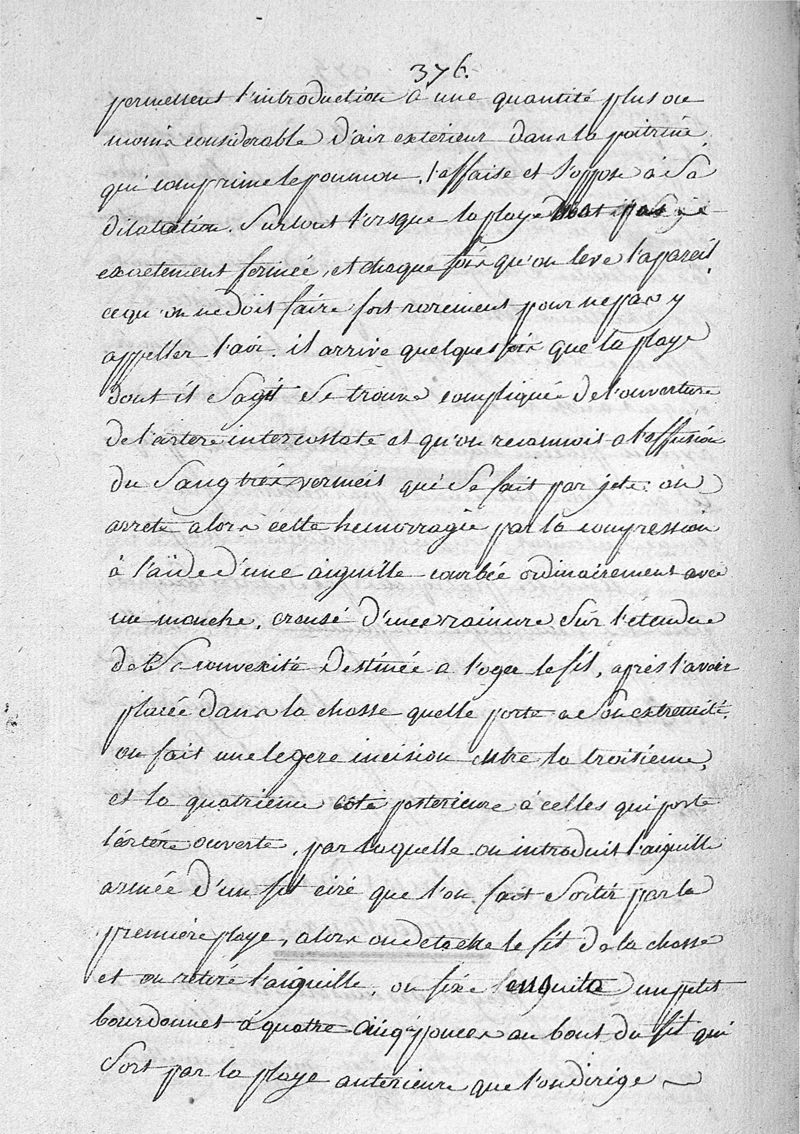 376.
permettent l'introduction a une quantité plus ou
moins considerable d'air exterieur dans la poitrine,
qui comprime le poumon, l'affaise et s'oppose à sa
dilatation. surtout l'orsque la playe n'est pas
exactement fermée, et chaque fois qu'on leve l'apareil
ce qu'on ne doit faire fort rarement pour ne pas y
appeller l'air. il arrive quelques fois que la playe
dont il sagit se trouve compliquée de l'ouverture
de l'artere intercostale et qu'on reconnoit a l'effusion
du sang trés vermeil qui se fait par jets. on
arrete alors cette hemorragie par la compression
à l'aide d'une aiguille courbée ordinairement avec
un manche, creusé d'une rainure sur l'etendue
de sa convexité destinée a l'oger le fil, après l'avoir
placée dans la chasse quelle porte a son extremité.
on fait une legere incision entre la troisieme,
et la quatrieme cote posterieure à celles qui porte
l'artére ouverte, par laquelle on introduit l'aiguille
armée d'un fil ciré que l'on fait sortir par la
premiére playe, alors on detache le fil de la chasse
et on retire l'aiguille, on fixe ensuite un petit
bourdonnet à quatre cinq pouces au bout du fil qui
sort par la playe anterieure que l'on dirige